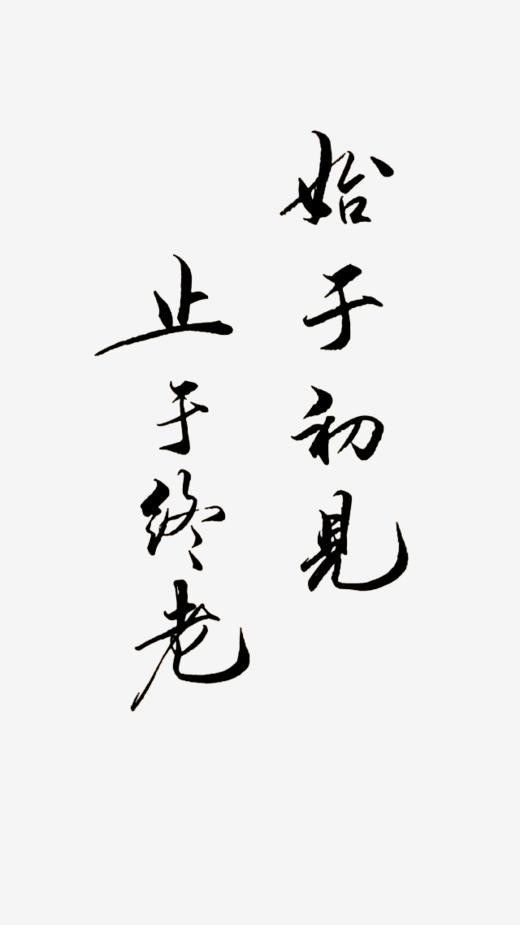 始于初見
止于终老